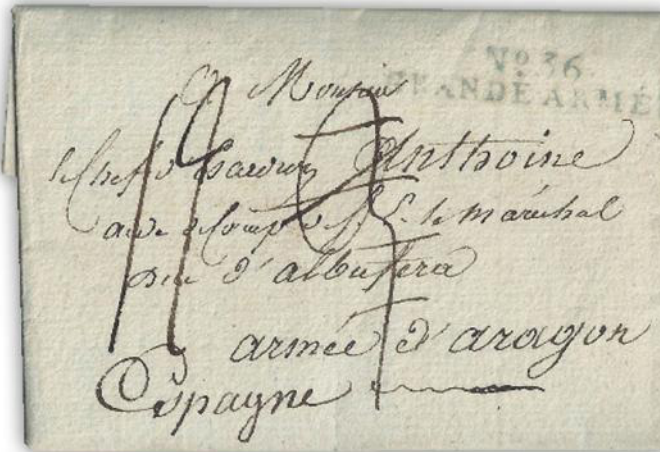 No 36
GRANDE ARMÉE
A Monsieur
le Chef d'Escadron Anthoine
aide de Camp de S. E. le Maréchal
Duc d'albufera
armée d'aragon
Espagne